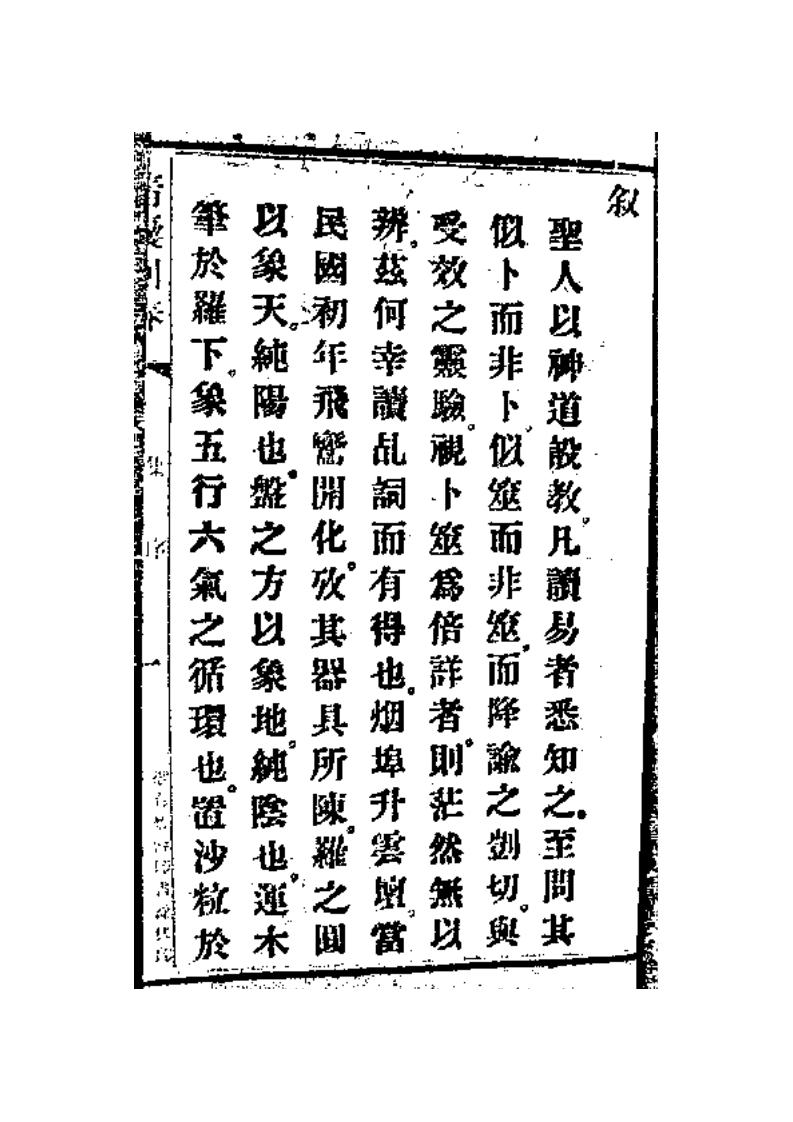 叙
聖人以神道設教。凡讀易者悉知之。至問其
似卜而非卜。似筮而非筮。而降諭之剴切。與
受效之靈驗。視卜筮爲倍詳者。則茫然無以
辨。茲何幸讀乩詞而有得也。烟埠升雲壇。當
民國初年飛鸞開化。攷其器具所陳。羅之圓
以象天。純陽也。盤之方以象地。純陰也。運木
筆於羅下。象五行六氣之循環也。置沙粒於
集 序 一